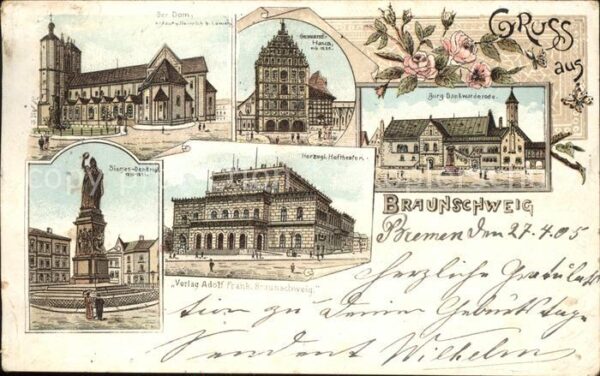 Der Dom,
Gewand-
Haus,
GRUSS
aus
Burg Dankwarderode.
Siegesdenkmal
Herzogl. Hoftheater.
BRAUNSCHWEIG
Bremen den 27.4.05
„Verlag Adolf Frank, Braunschweig.“
herzliche Gratula
tion zu Deinem Geburtstage
Sendent Wilhelm